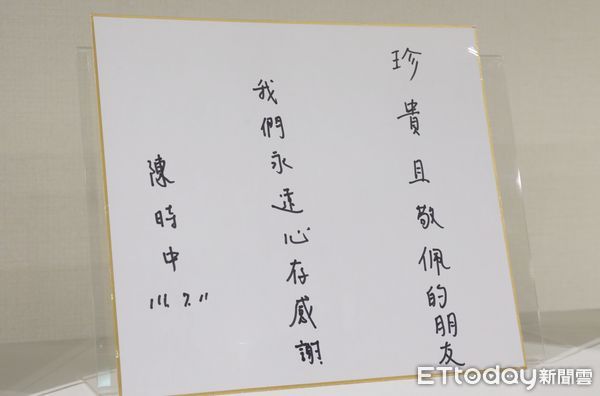 珍貴且敬佩的朋友
我們永遠心存感謝
陳時中
111.7.11
ETtoday新聞雲